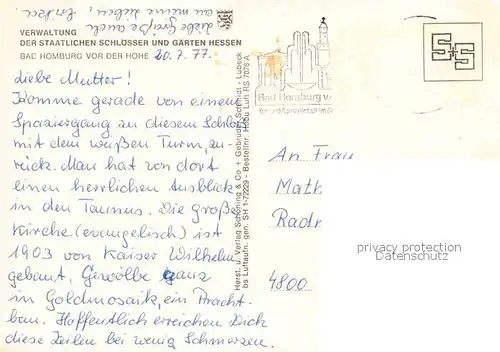 liebe Grüße auch
an meine Lieben,
VERWALTUNG
DER STAATLICHEN SCHLÖSSER UND GÄRTEN HESSEN
BAD HOMBURG VOR DER HÖHE 20.7.77.
Liebe Mutter!
Komme gerade von einem
Spaziergang zu diesem Schloß
mit dem weißen Turm, zu-
rück. Man hat von dort
einen herrlichen Ausblick
in den Taunus. Die große
Kirche (evangelisch) ist
1903 von Kaiser Wilhelm
gebaut, Gewölbe ganz
in Goldmosaik, ein Pracht-
bau. Hoffentlich erreichen Dich
diese Zeilen bei wenig Schmerzen.
Herst. u. Verlag Schöning & Co + Gebrüder Schmidt - Lübeck
bs Luftaufn. gen. SH 1-72229 - Bestellnr. HoBu Luft RS 7076 A
Bad Homburg v
S+S
An Frau
Math
Radr
4800
privacy protection
Datenschutz